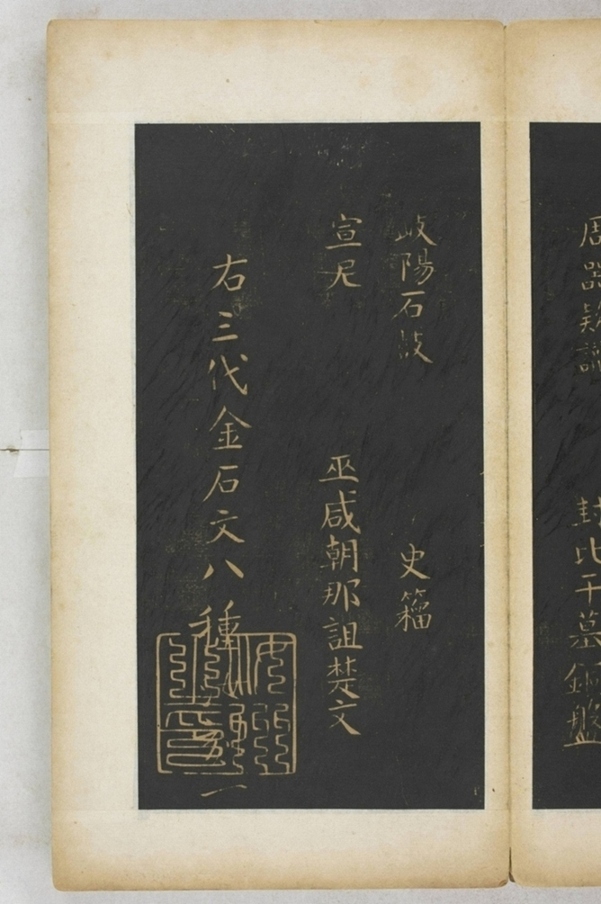 周器欵識 封比干墓銅盤
岐陽石鼓 史籀
宣尼 巫咸朝那詛楚文
右三代金石文八種 一